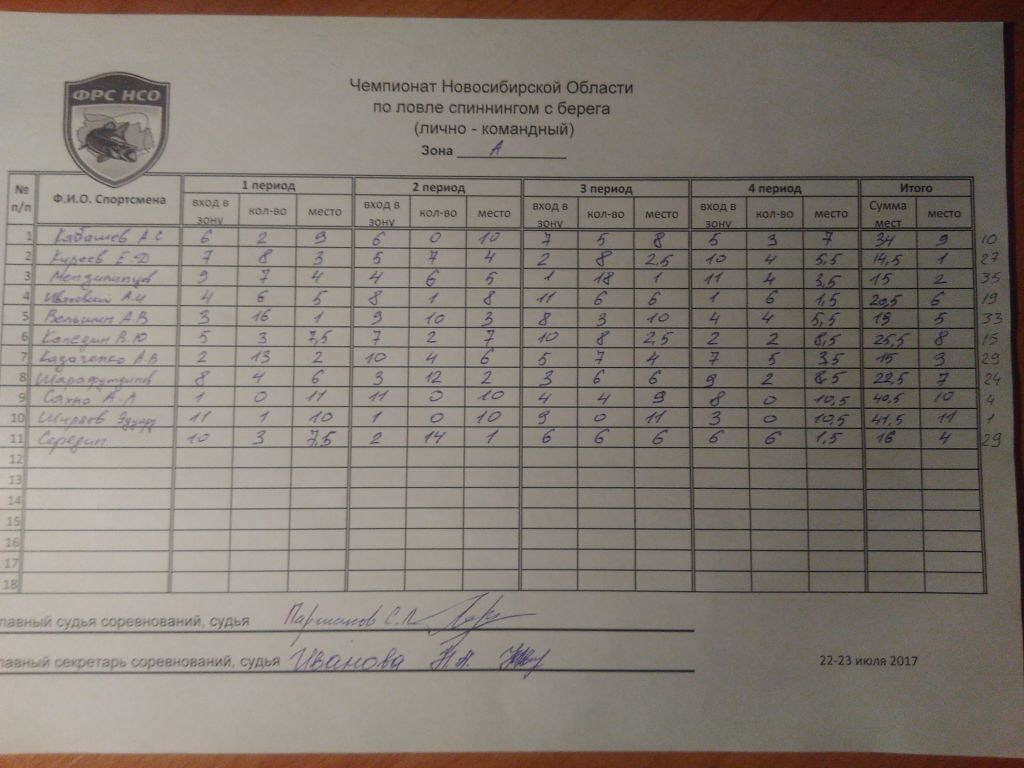 ФРС НСО
Чемпионат Новосибирской Области
по ловле спиннингом с берега
(лично - командный)
Зона А
№ п/п Ф.И.О. Спортсмена 1 период 2 период 3 период 4 период Итого
вход в зону кол-во место вход в зону кол-во место вход в зону кол-во место вход в зону кол-во место Сумма мест место
1 Кабашев А С 6 2 9 6 0 10 7 5 8 5 3 7 34 9 10
2 Киреев Е.Ф 7 8 3 5 7 4 2 8 2,5 10 4 5,5 14,5 1 27
3 9 7 4 4 6 5 1 18 1 11 4 3,5 15 2 35
4 Ивановский А.И 4 6 5 8 1 8 11 6 6 1 6 1,5 20,5 6 19
5 Вельшин А.В 3 16 1 9 10 3 8 3 10 4 4 5,5 19 5 33
6 Каледин В.Ю 5 3 7,5 7 2 7 10 8 2,5 2 2 8,5 25,5 8 15
7 Казаченко А.В 2 13 2 10 4 6 5 7 4 7 5 3,5 15 3 29
8 Шарафутдинов 8 4 6 3 12 2 3 6 6 9 2 8,5 22,5 7 24
9 Сахно А.А 1 0 11 11 0 10 4 4 9 8 0 10,5 40,5 10 4
10 Ширяев Эдуард 11 1 10 1 0 10 9 0 11 3 0 10,5 41,5 11 1
11 Середин 10 3 7,5 2 14 1 6 6 6 6 6 1,5 16 4 29
12
13
14
15
16
17
18
лавный судья соревнований, судья Паршаков С.Л
лавный секретарь соревнований, судья Иванова Н.А.
22-23 июля 2017